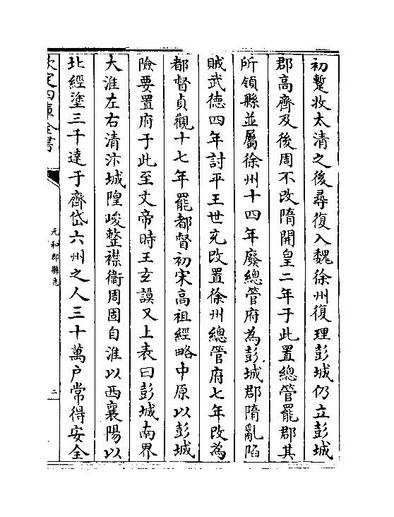 初蹔收太清之後尋復入魏徐州復理彭城仍立彭城
郡高齊及後周不改隋開皇二年于此置總管罷郡其
所領縣並屬徐州十四年廢總管府為彭城郡隋亂陷
賊武徳四年討平王世充改置徐州總管府七年改為
都督貞觀十七年罷都督初宋高祖經略中原以彭城
險要置府于此至文帝時王玄謨又上表曰彭城南界
大淮左右清汴城隍峻整襟衛周固自淮以西襄陽以
北經塗三千達于齊岱六州之人三十萬户常得安全
欽定四庫全書
元和郡縣志
二